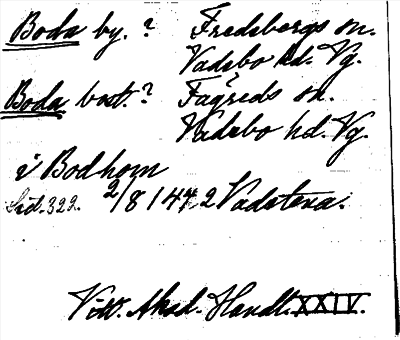 Boda by. ? Fredsbergs sn.
Vadsbo hd. Vg.
Boda bost. ? Fägreds sn.
Vadsbo hd. Vg.
i Bodhom
Sid. 322. 2/8 1442 Vadstena.
Vitt. Akad. Handl. XXIV.